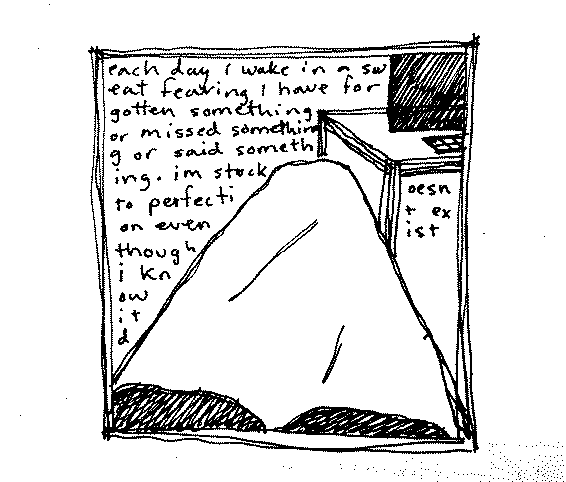 each day i wake in a sw
eat fearing i have for
gotten something
or missed somethin
g or said someth
ing. im stuck
to perfecti
on even
though
i kn
ow
it
d
oesn
t ex
ist